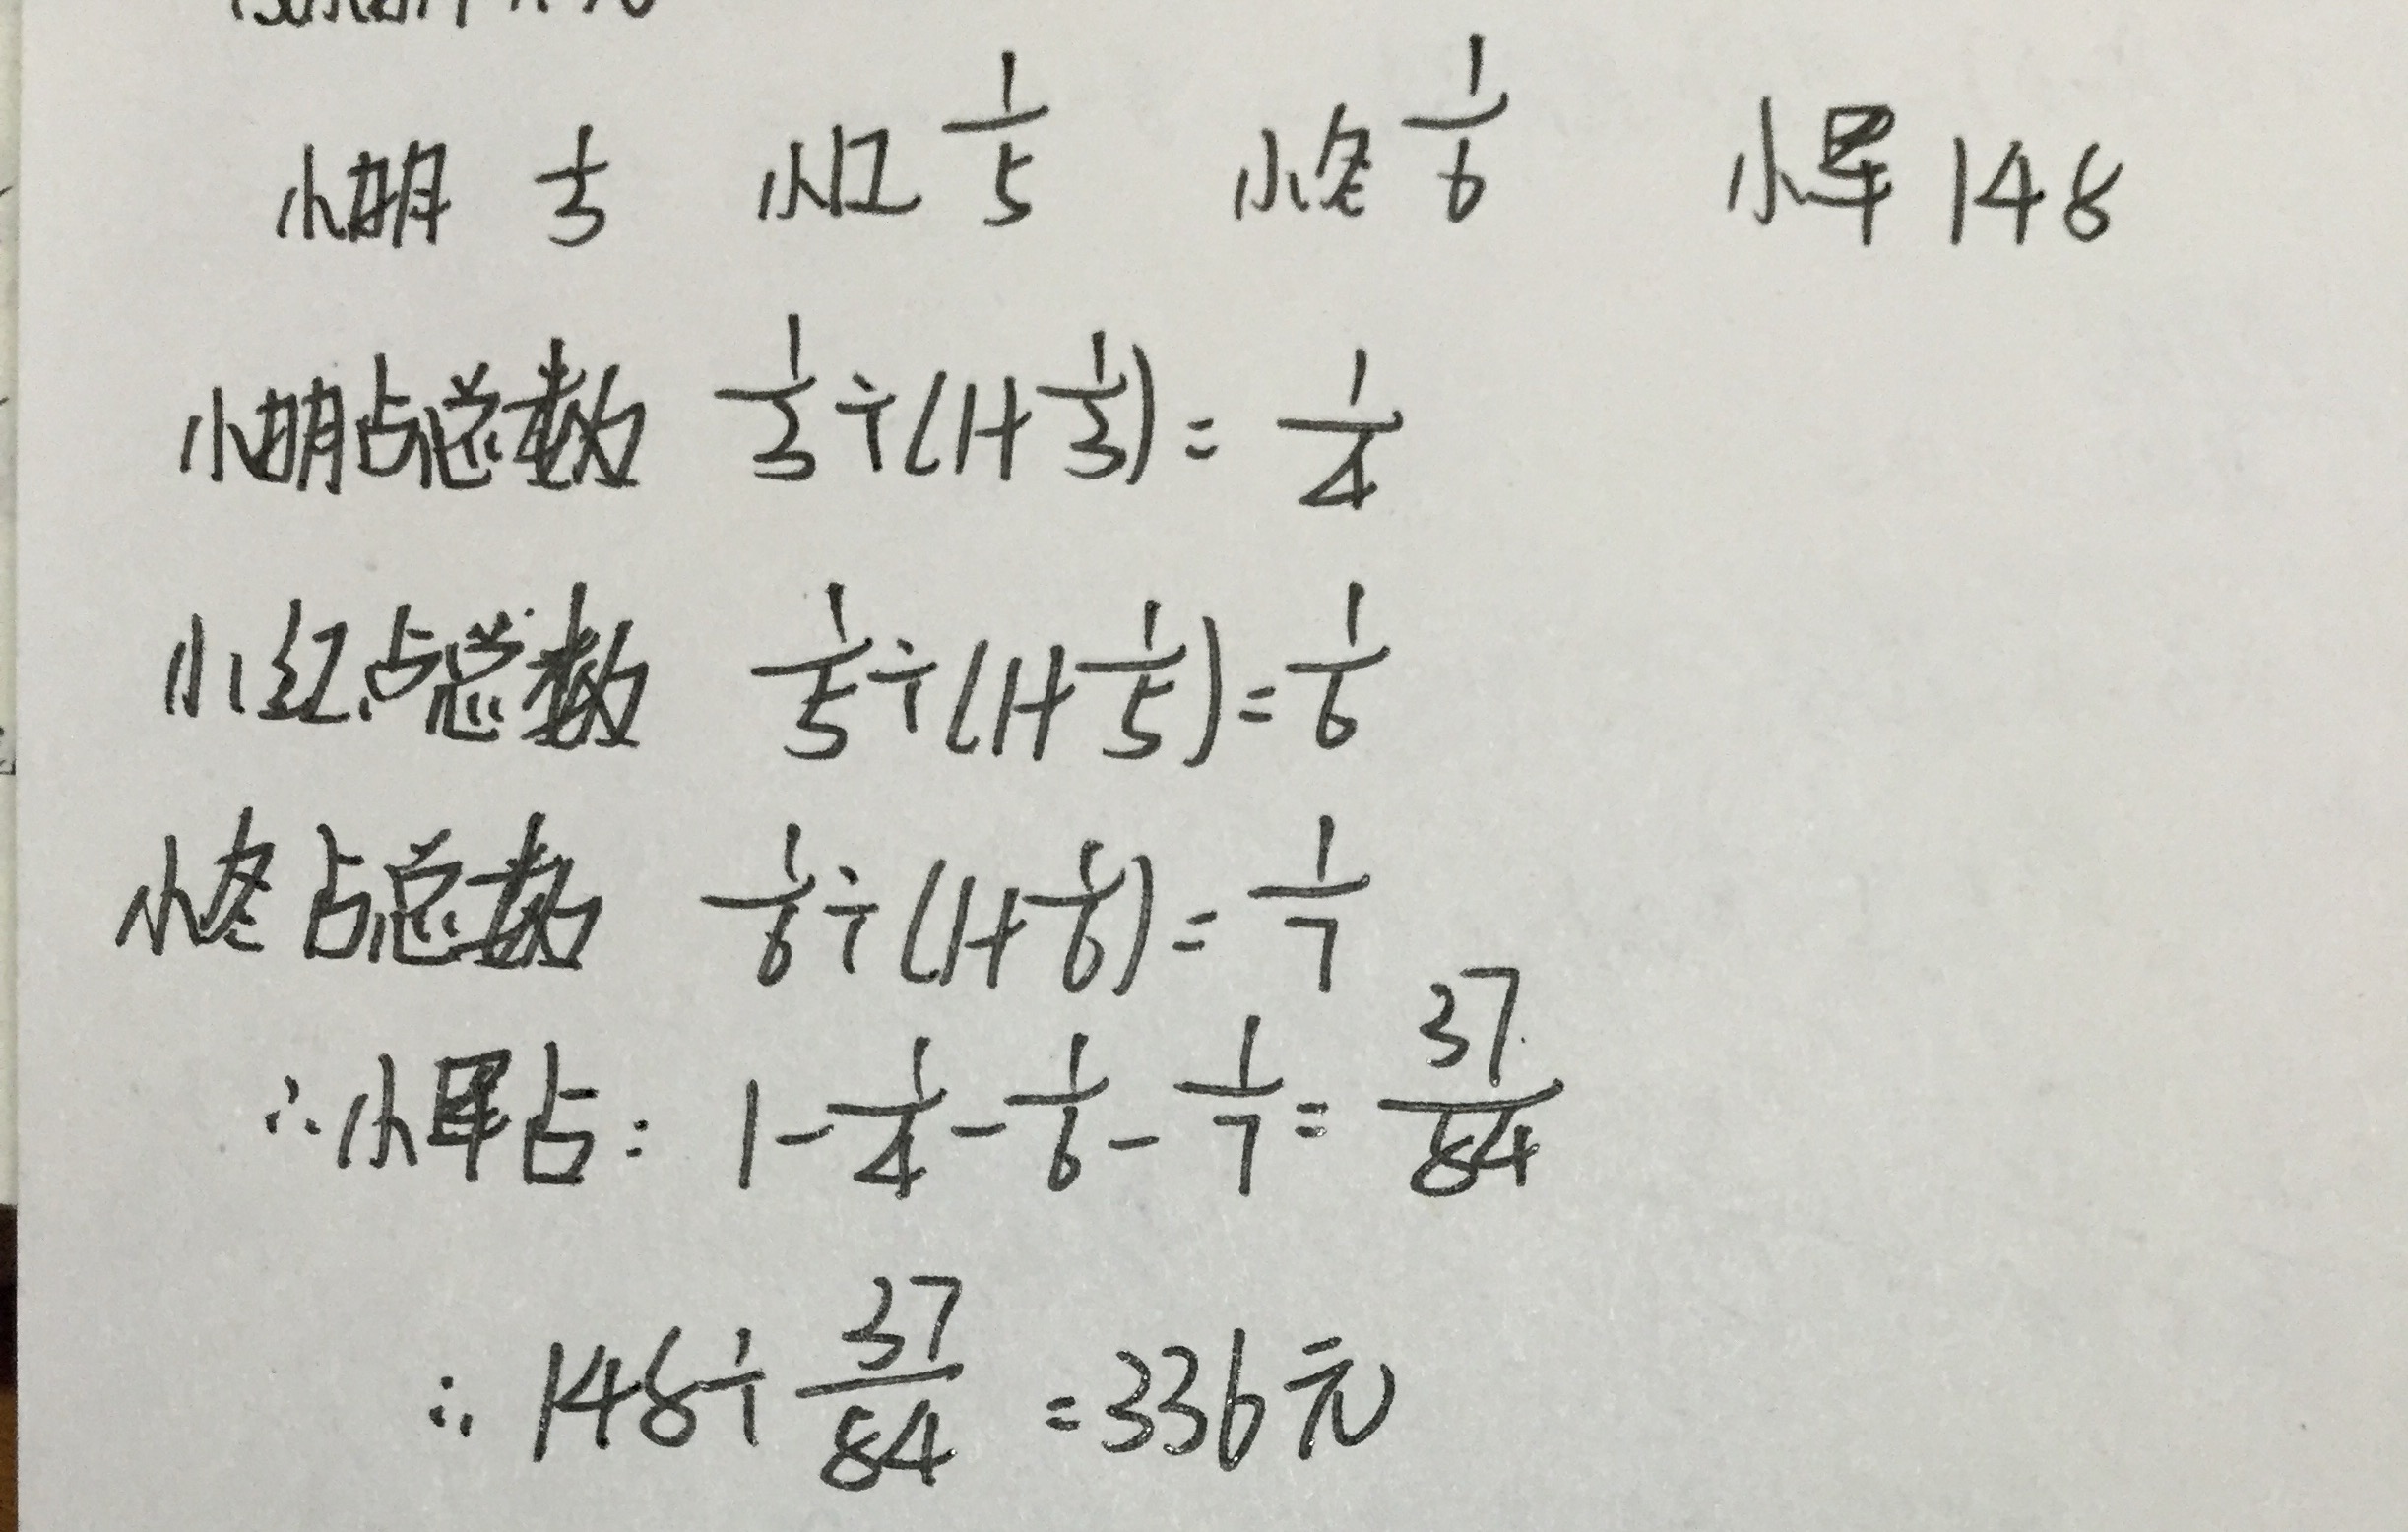 小明 1/3 小红 1/5 小冬 1/6 小军 148
小明占总数 1/3÷(1+1/3)=1/4
小红占总数 1/5÷(1+1/5)=1/6
小冬占总数 1/6÷(1+1/6)=1/7
∴小军占: 1-1/4-1/6-1/7=37/84
∴148÷37/84=336元